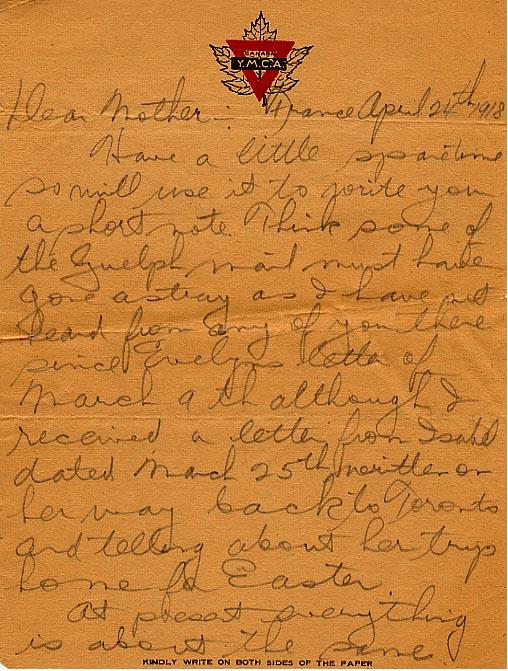 CANADA
Y.M.C.A.
Dear Mother:- France April 24th 1918
Have a little sparetime
so will use it to write you
a short note. Think some of
the Guelph mail must have
gone astray as I have not
heard from any of you there
since Evelyns letter of
March 9th although I
received a letter from Isabel
dated March 25th written on
her way back to Toronto
and telling about her trip
home for Easter.
At present everything
is about the same
KINDLY WRITE ON BOTH SIDES OF THE PAPER